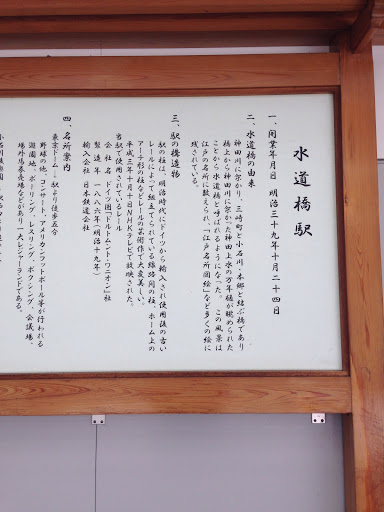 水道橋駅
一、開業年月日　明治三十九年十月二十四日
二、水道橋の由来
神田川に架かり、三崎町と小石川・本郷と結ぶ橋であり
橋上から神田川に架かった神田上水の万年樋が眺められた
ことから水道橋と呼ばれるようになった。この風景は
江戸の名所に数えられ、「江戸名所図絵」など多くの絵に
残されている。
三、駅の構造物
駅の柱は、明治時代にドイツから輸入され使用後の古い
レールによって組立てられている線路間の柱、ホーム上の
アーチ形の柱などレールの芸術作で大変美しい。
平成三年十月十日ＮＨＫテレビで放映された。
当駅で使用されているレール
会社名　ドイツ国『ドルトムント・ウニオン』社
製造年　一八八六年（明治十九年）
輸入会社　日本鉄道会社
四、名所案内
東京ドーム　駅より徒歩五分
野球の他、コンサート、アメリカンフットボール等が行われる
遊園地、ボーリング、レスリング、ボクシング、会議場、
場外馬券売場などがあり一大レジャーランドである。